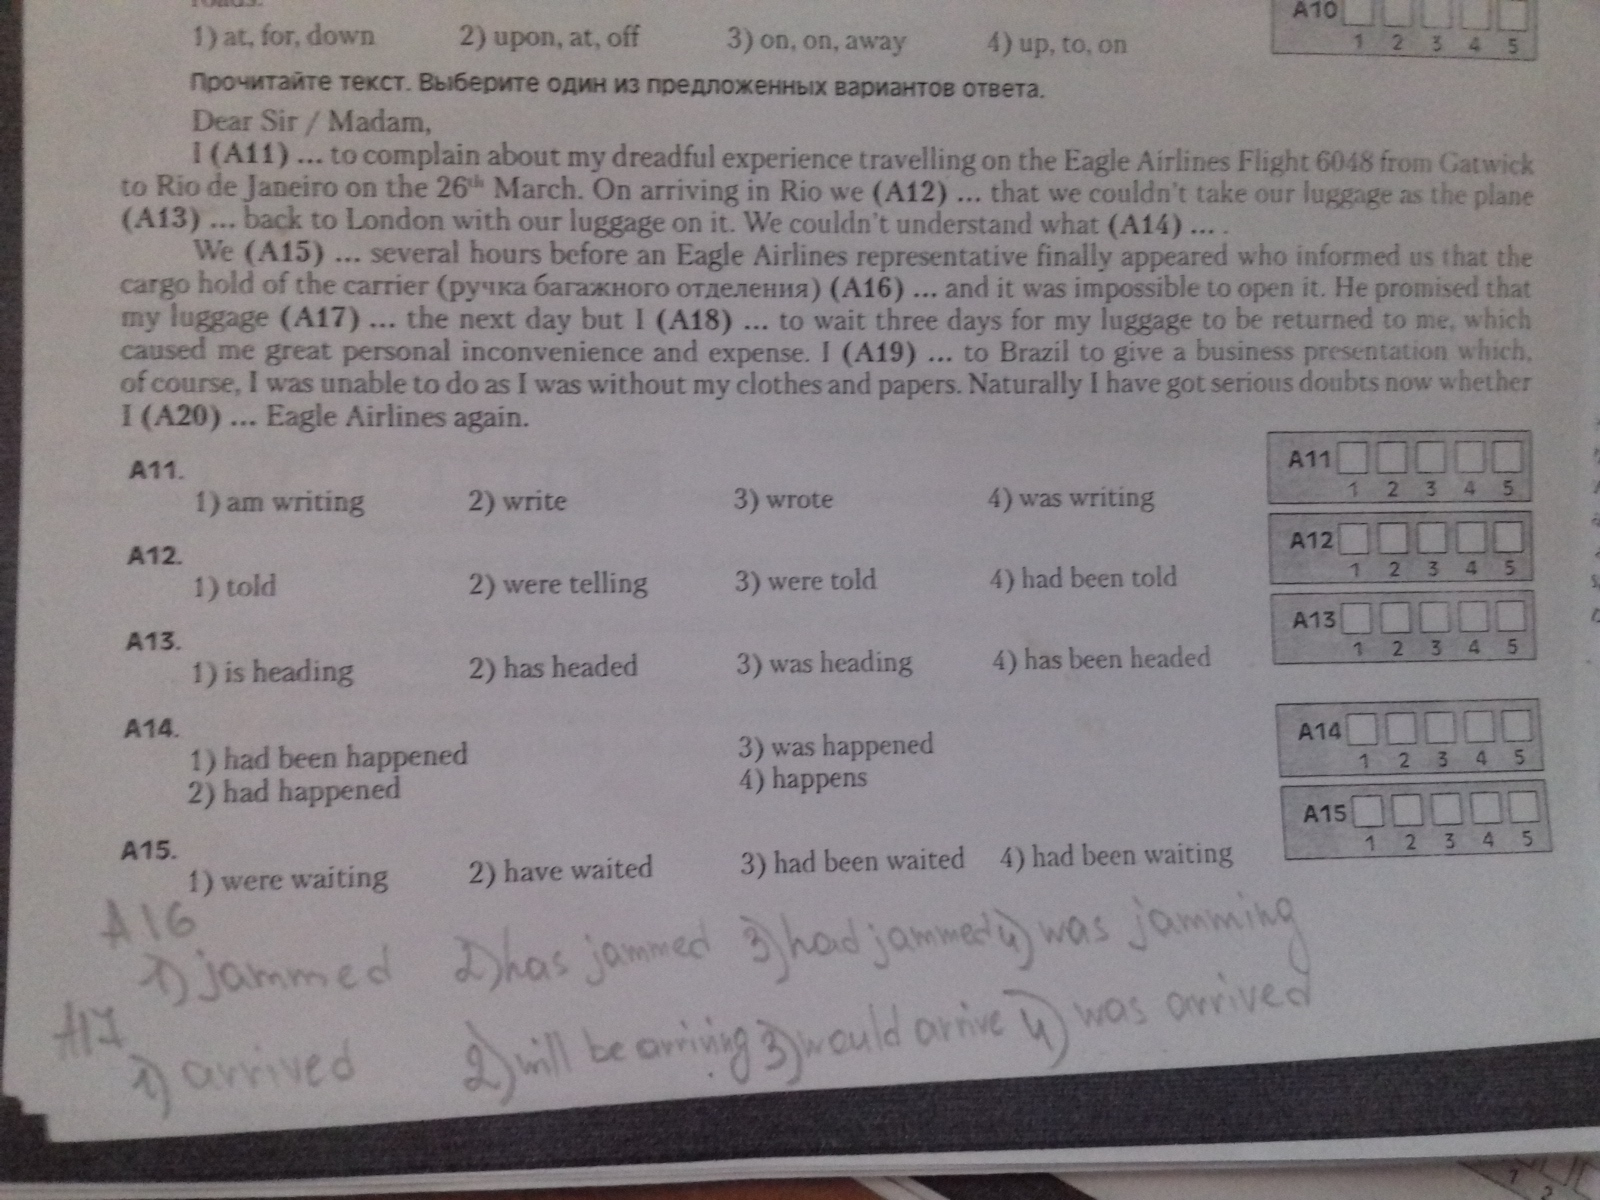 1) at, for, down 2) upon, at, off 3) on, on, away 4) up, to, on
A10
1 2 3 4 5
Прочитайте текст. Выберите один из предложенных вариантов ответа.
Dear Sir / Madam,
I (A11) ... to complain about my dreadful experience travelling on the Eagle Airlines Flight 6048 from Gatwick
to Rio de Janeiro on the 26th March. On arriving in Rio we (A12) ... that we couldn't take our luggage as the plane
(A13) ... back to London with our luggage on it. We couldn't understand what (A14) ... .
We (A15) ... several hours before an Eagle Airlines representative finally appeared who informed us that the
cargo hold of the carrier (ручка багажного отделения) (A16) ... and it was impossible to open it. He promised that
my luggage (A17) ... the next day but I (A18) ... to wait three days for my luggage to be returned to me, which
caused me great personal inconvenience and expense. I (A19) ... to Brazil to give a business presentation which,
of course, I was unable to do as I was without my clothes and papers. Naturally I have got serious doubts now whether
I (A20) ... Eagle Airlines again.
A11.
1) am writing 2) write 3) wrote 4) was writing
A11
1 2 3 4 5
A12.
1) told 2) were telling 3) were told 4) had been told
A12
1 2 3 4 5
A13.
1) is heading 2) has headed 3) was heading 4) has been headed
A13
1 2 3 4 5
A14.
1) had been happened 3) was happened
2) had happened 4) happens
A14
1 2 3 4 5
A15.
1) were waiting 2) have waited 3) had been waited 4) had been waiting
A15
1 2 3 4 5
A16
1) jammed 2) has jammed 3) had jammed 4) was jamming
A17
1) arrived 2) will be arriving 3) would arrive 4) was arrived